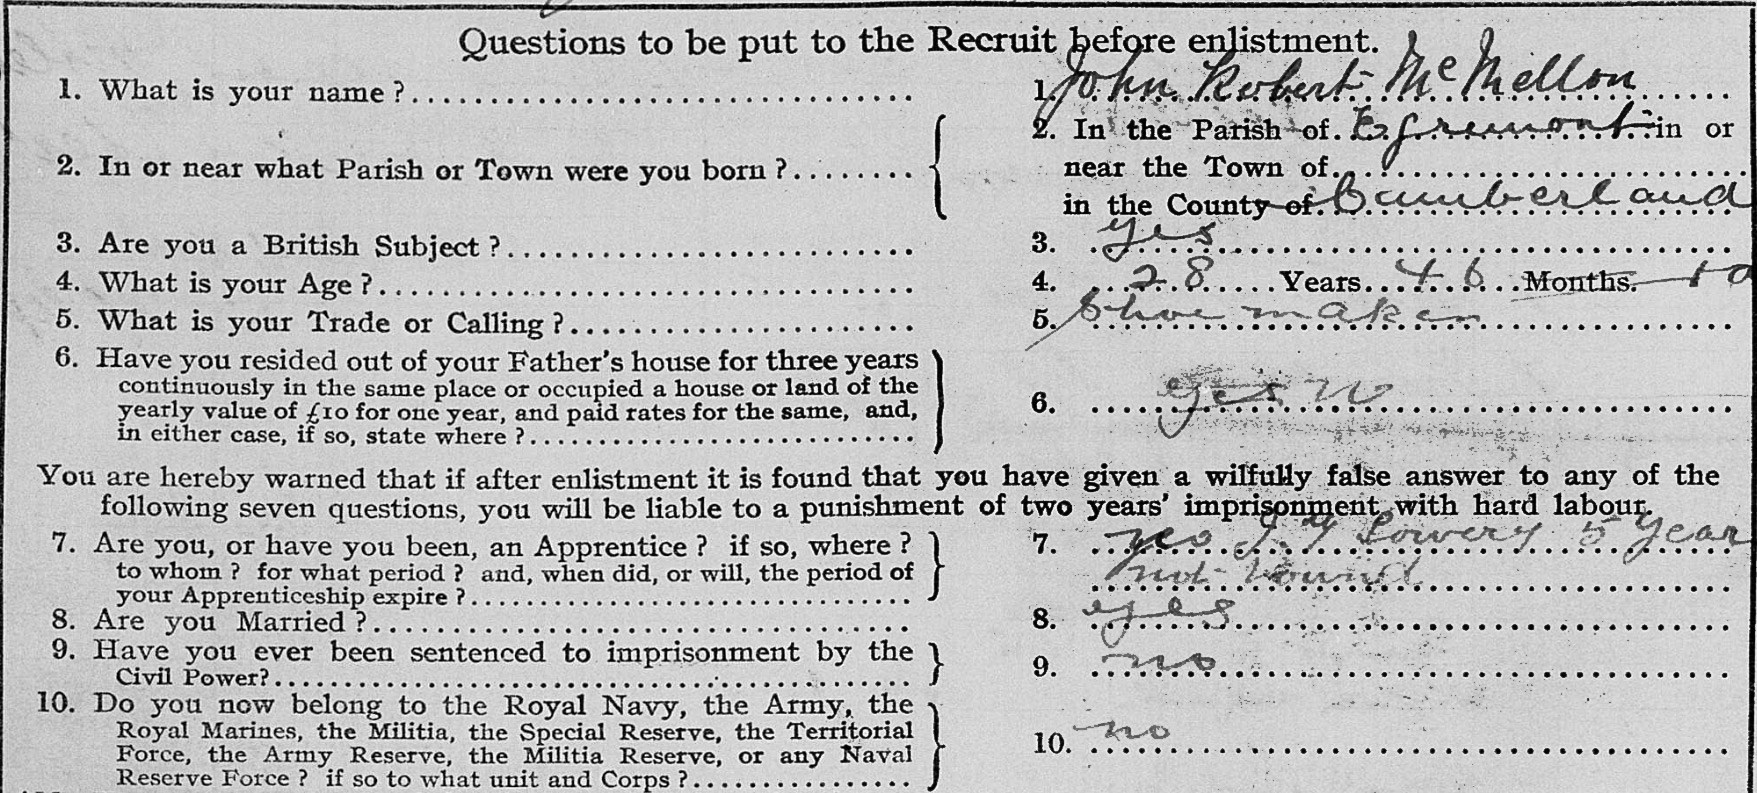 Questions to be put to the Recruit before enlistment.
1. What is your name ?
1. John Robert McMellon
2. In or near what Parish or Town were you born ?
2. In the Parish of Egremont in or
near the Town of
in the County of Cumberland
3. Are you a British Subject ?
3. yes
4. What is your Age ?
4. 28 Years 4 6 Months. 10
5. What is your Trade or Calling ?
5. Shoe maker
6. Have you resided out of your Father's house for three years
continuously in the same place or occupied a house or land of the
yearly value of £10 for one year, and paid rates for the same, and,
in either case, if so, state where ?
6. yes no
You are hereby warned that if after enlistment it is found that you have given a wilfully false answer to any of the
following seven questions, you will be liable to a punishment of two years' imprisonment with hard labour.
7. Are you, or have you been, an Apprentice ? if so, where ?
to whom ? for what period ? and, when did, or will, the period of
your Apprenticeship expire ?
7. yes J. Lowery 5 Year
not bound
8. Are you Married ?
8. yes
9. Have you ever been sentenced to imprisonment by the
Civil Power?
9. no
10. Do you now belong to the Royal Navy, the Army, the
Royal Marines, the Militia, the Special Reserve, the Territorial
Force, the Army Reserve, the Militia Reserve, or any Naval
Reserve Force ? if so to what unit and Corps ?
10. no